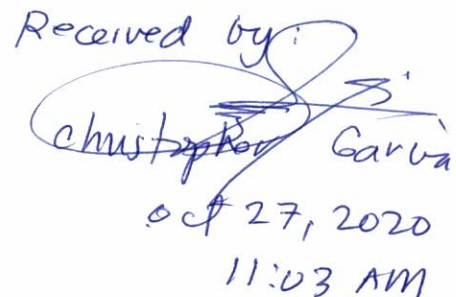 Received by:
Christopher Garcia
Oct 27, 2020
11:03 AM